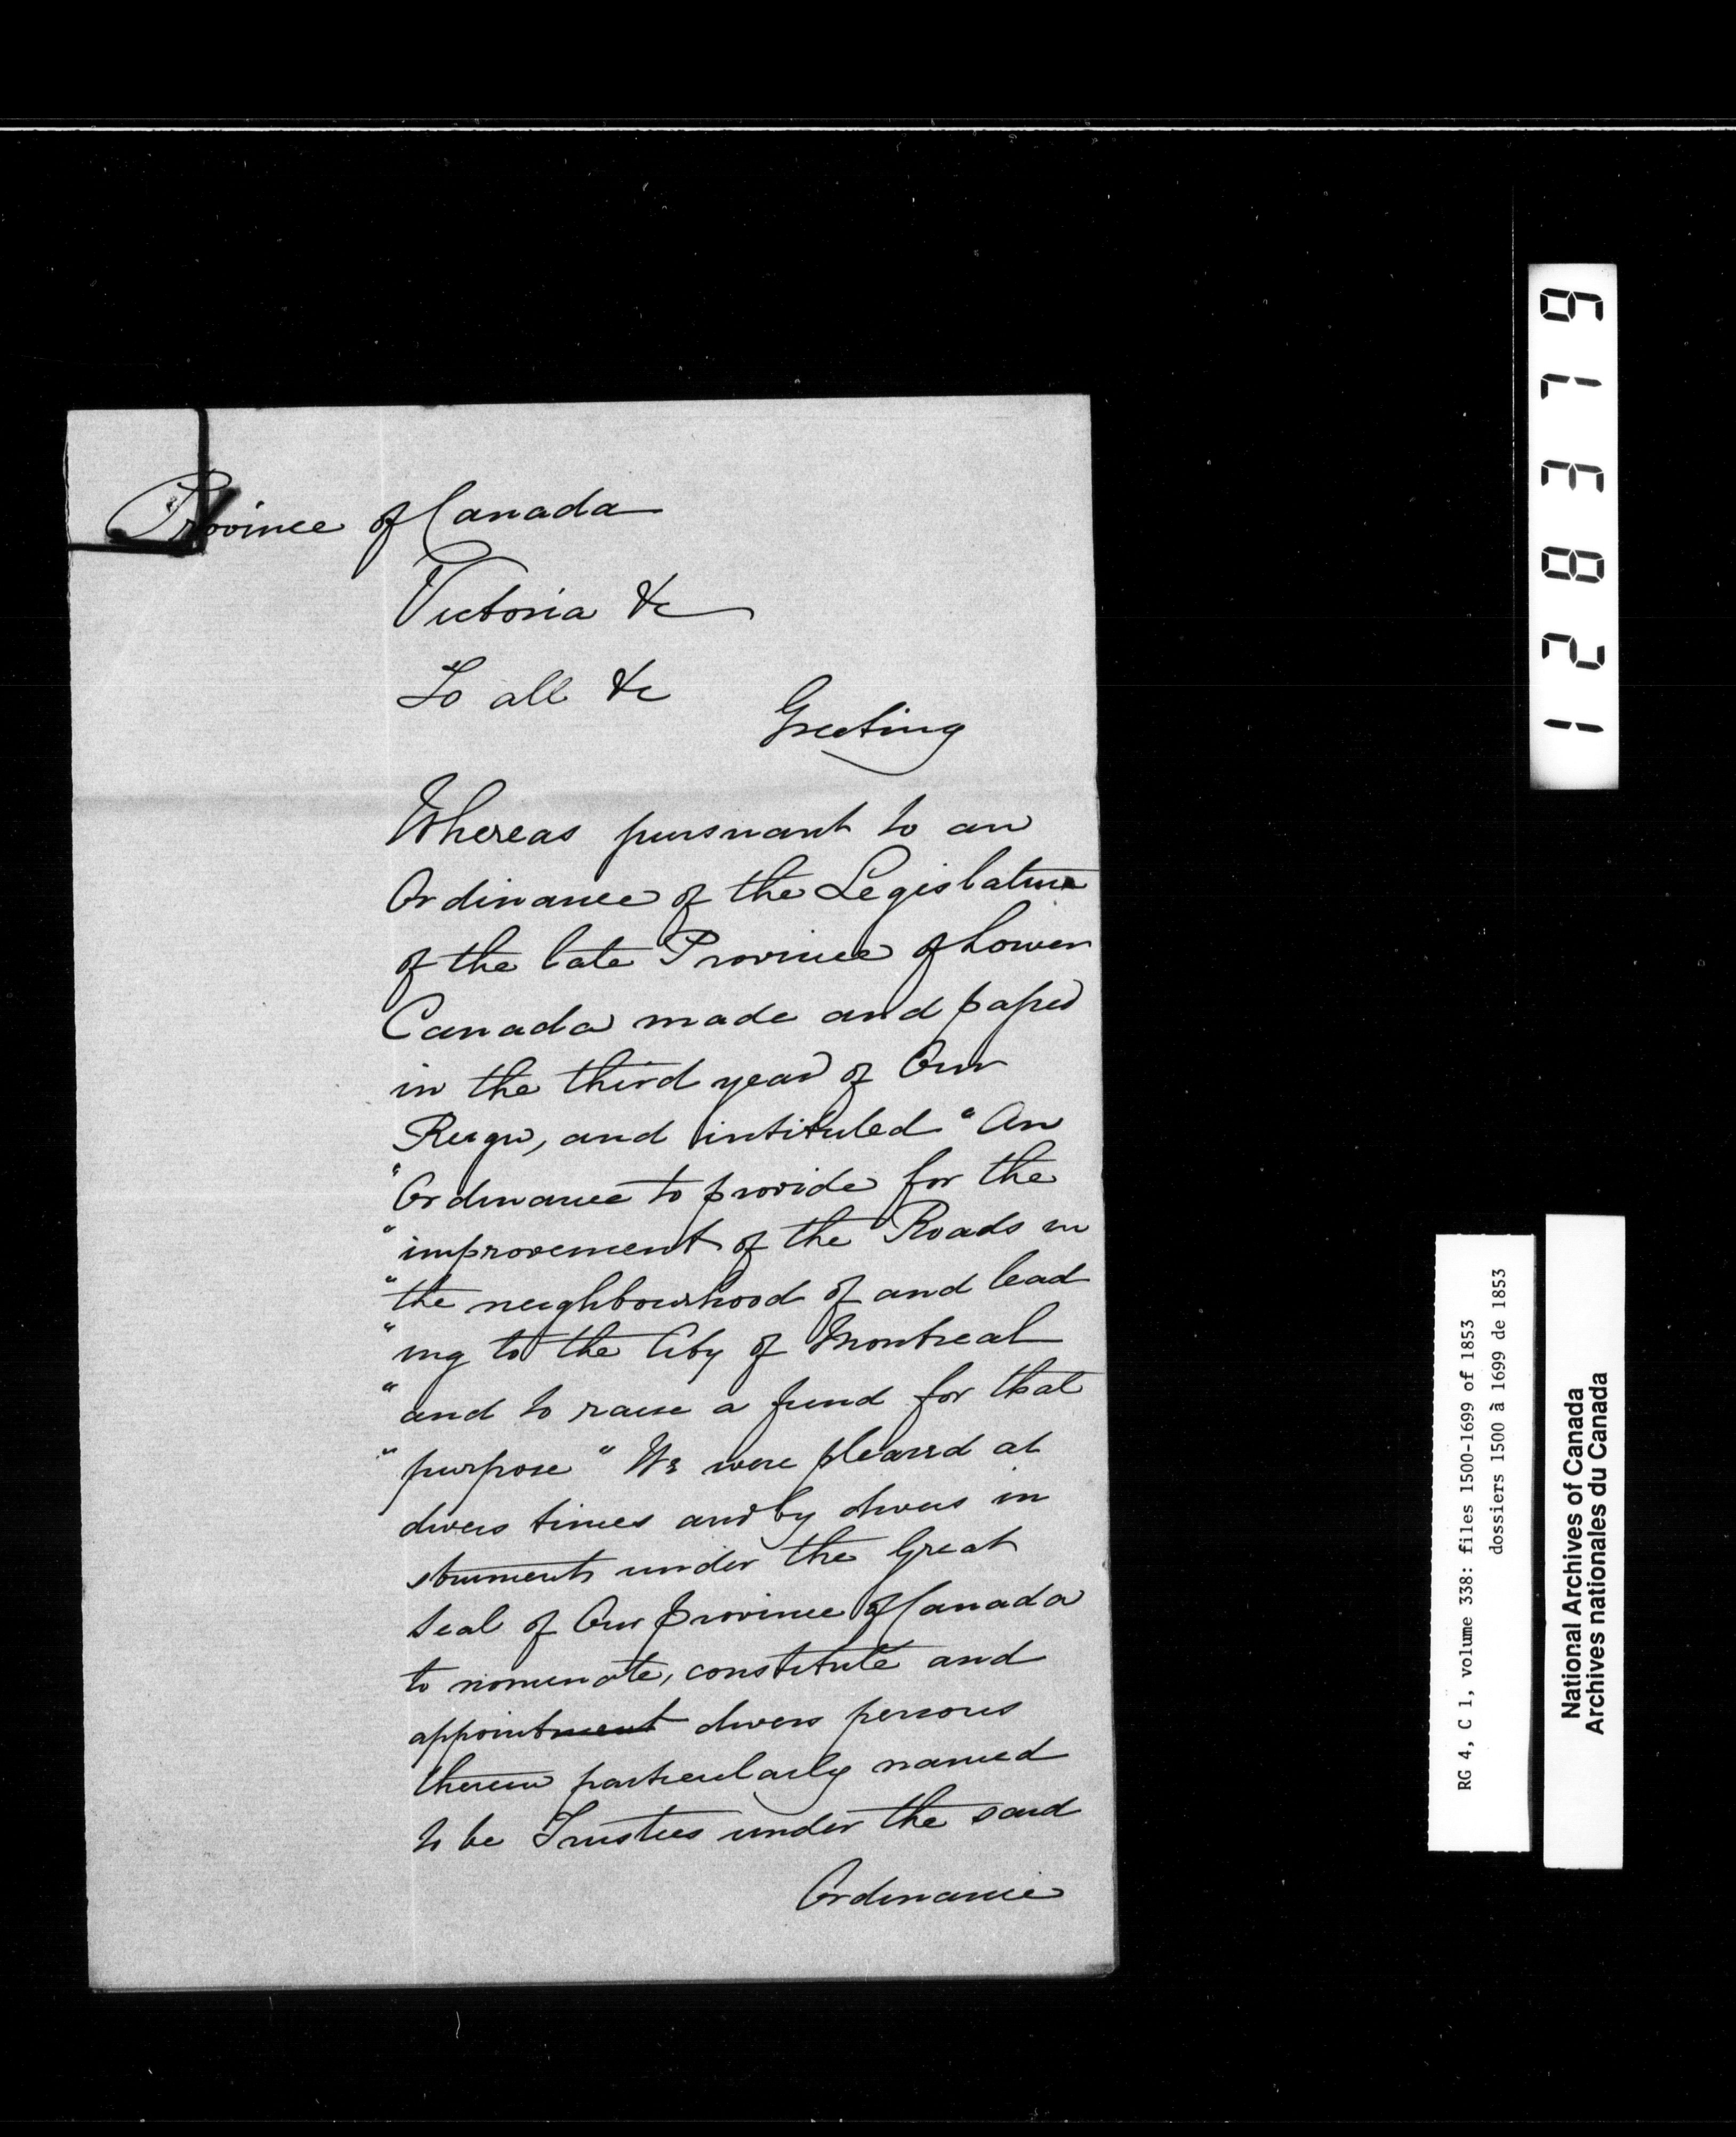 Province of Canada
Victoria &c
To all &c
Greeting
Whereas pursuant to an
Ordinance of the Legislature
of the late Province of Lower
Canada made and passed
in the third year of Our
Reign, and intituled "An
"Ordinance to provide for the
"improvement of the Roads in
"the neighbourhood of and lead
"ing to the City of Montreal
"and to raise a fund for that
"purpose" We were pleased at
divers times and by divers in
struments under the Great
Seal of Our Province of Canada
to nominate, constitute and
appointment divers persons
therein particularly named
to be Trustees under the said
Ordinance
128379
RG 4, C 1, volume 338: files 1500-1699 of 1853
dossiers 1500 à 1699 de 1853
National Archives of Canada
Archives nationales du Canada